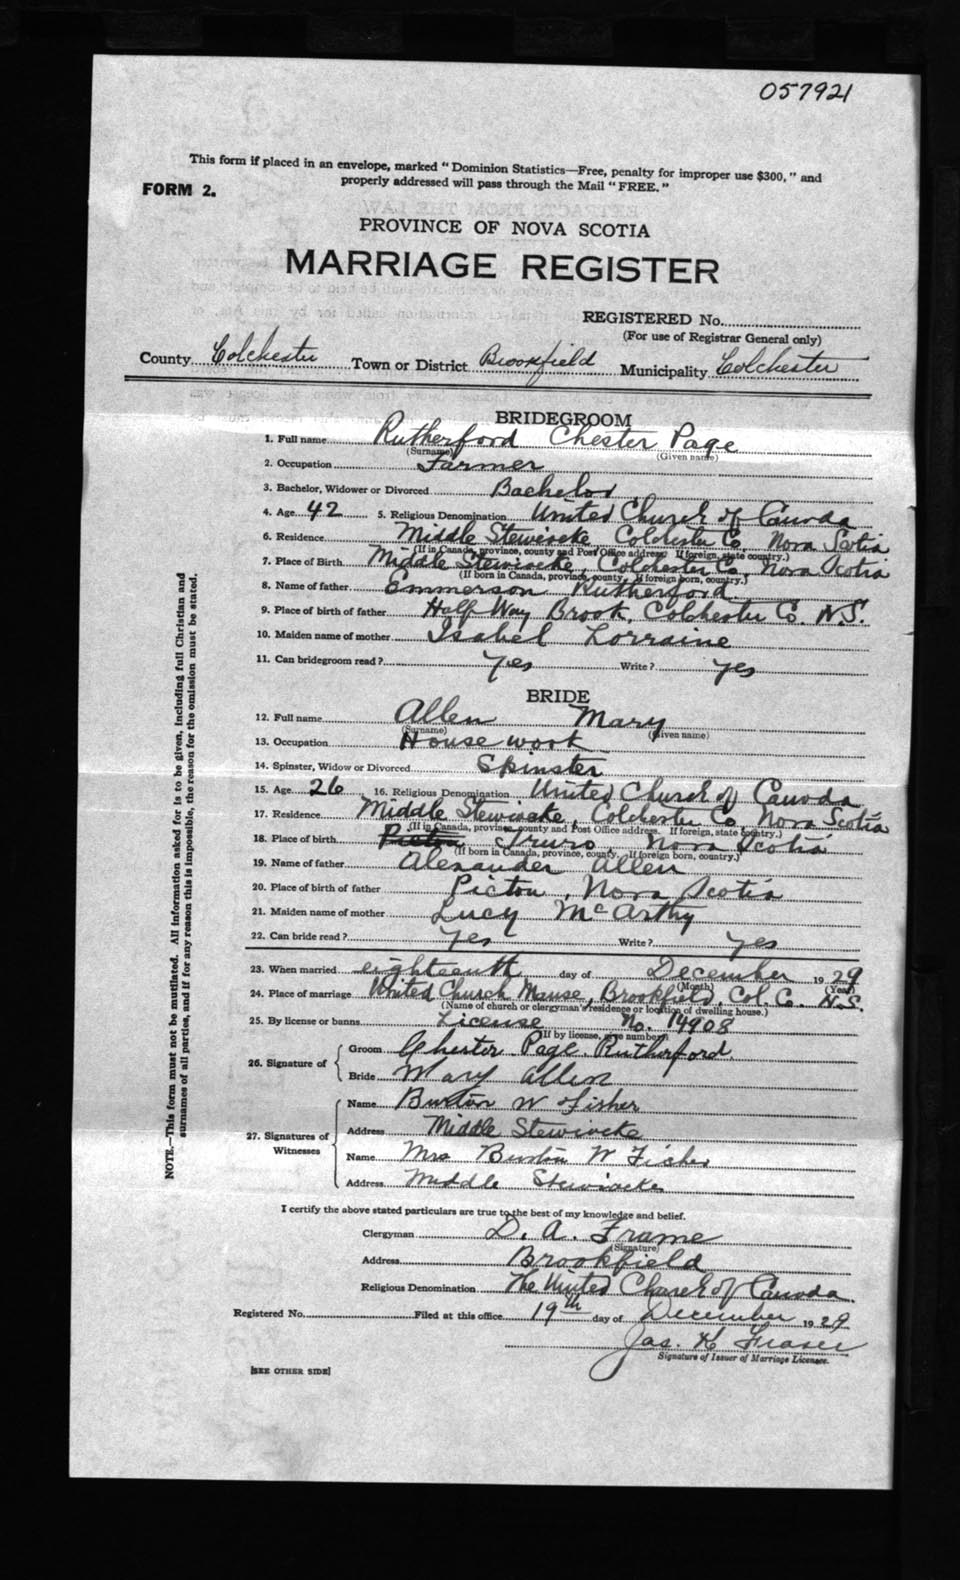 057921
This form if placed in an envelope, marked "Dominion Statistics—Free, penalty for improper use $300," and
properly addressed will pass through the Mail "FREE."
FORM 2.
PROVINCE OF NOVA SCOTIA
MARRIAGE REGISTER
REGISTERED No.
(For use of Registrar General only)
County Colchester Town or District Brookfield Municipality Colchester
BRIDEGROOM
1. Full name Rutherford Chester Page
(Surname) (Given name)
2. Occupation Farmer
3. Bachelor, Widower or Divorced Bachelor
4. Age 42 5. Religious Denomination United Church of Canada
6. Residence Middle Stewiacke Colchester Co. Nova Scotia
(If in Canada, province, county and Post Office address. If foreign, state country.)
7. Place of Birth Middle Stewiacke, Colchester Co. Nova Scotia
(If born in Canada, province, county. If foreign born, country.)
8. Name of father Emmerson Rutherford
9. Place of birth of father Half Way Brook, Colchester Co. N.S.
10. Maiden name of mother Isabel Lorraine
11. Can bridegroom read? yes Write? yes
BRIDE
12. Full name Allen Mary
(Surname) (Given name)
13. Occupation House work
14. Spinster, Widow or Divorced Spinster
15. Age 26 16. Religious Denomination United Church of Canada
17. Residence Middle Stewiacke, Colchester Co. Nova Scotia
(If in Canada, province, county and Post Office address. If foreign, state country.)
18. Place of birth Picton Truro, Nova Scotia
(If born in Canada, province, county. If foreign born, country.)
19. Name of father Alexander Allen
20. Place of birth of father Picton, Nova Scotia
21. Maiden name of mother Lucy McArthy
22. Can bride read? yes Write? yes
23. When married eighteenth day of December 1929
(Month) (Year)
24. Place of marriage United Church Manse, Brookfield, Col. Co. N.S.
(Name of church or clergyman's residence or location of dwelling house.)
25. By license or banns License No. 14908
(If by license, give number)
26. Signature of Groom Chester Page Rutherford
Bride Mary Allen
27. Signatures of Witnesses
Name Burton W Fisher
Address Middle Stewiacke
Name Mrs Burton W Fisher
Address Middle Stewiacke
I certify the above stated particulars are true to the best of my knowledge and belief.
Clergyman D. A. Frame
(Signature)
Address Brookfield
Religious Denomination The United Church of Canada
Registered No. Filed at this office 19th day of December 1929
Jas. H Fraser
Signature of Issuer of Marriage Licenses.
[SEE OTHER SIDE]
NOTE.—This form must not be mutilated. All information asked for is to be given, including full Christian and
surnames of all parties, and if for any reason this is impossible, the reason for the omission must be stated.